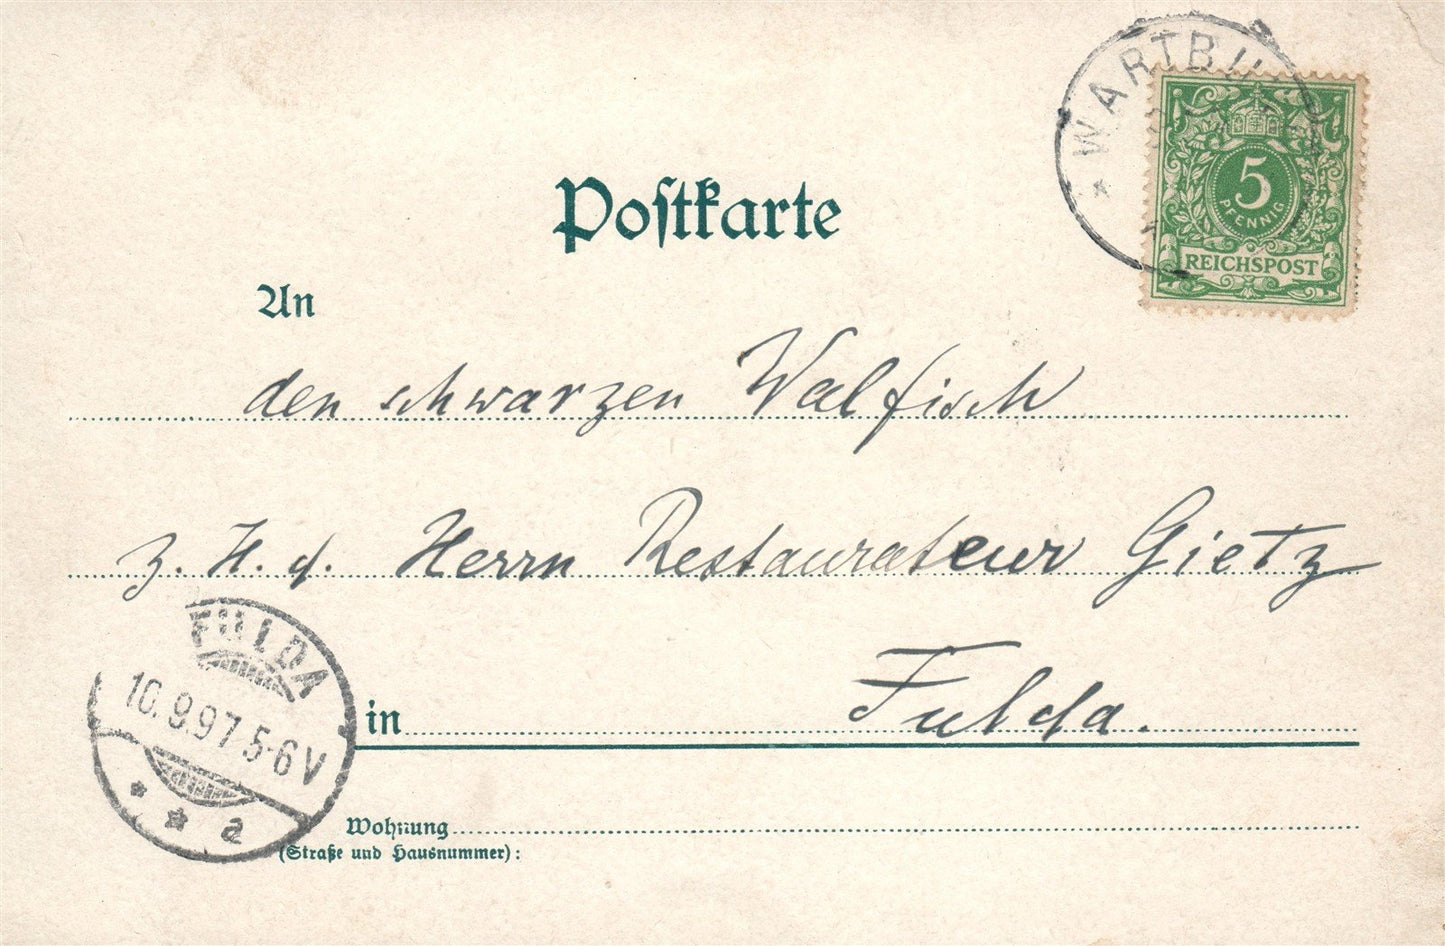 WARTBU
5
PFENNIG
REICHSPOST
Postkarte
An
den schwarzen Walfisch
z. H. d. Herrn Restaurateur Gietz
in Fulda.
FULDA
10.9.97 5-6 V
* * a
Wohnung
(Straße und Hausnummer):